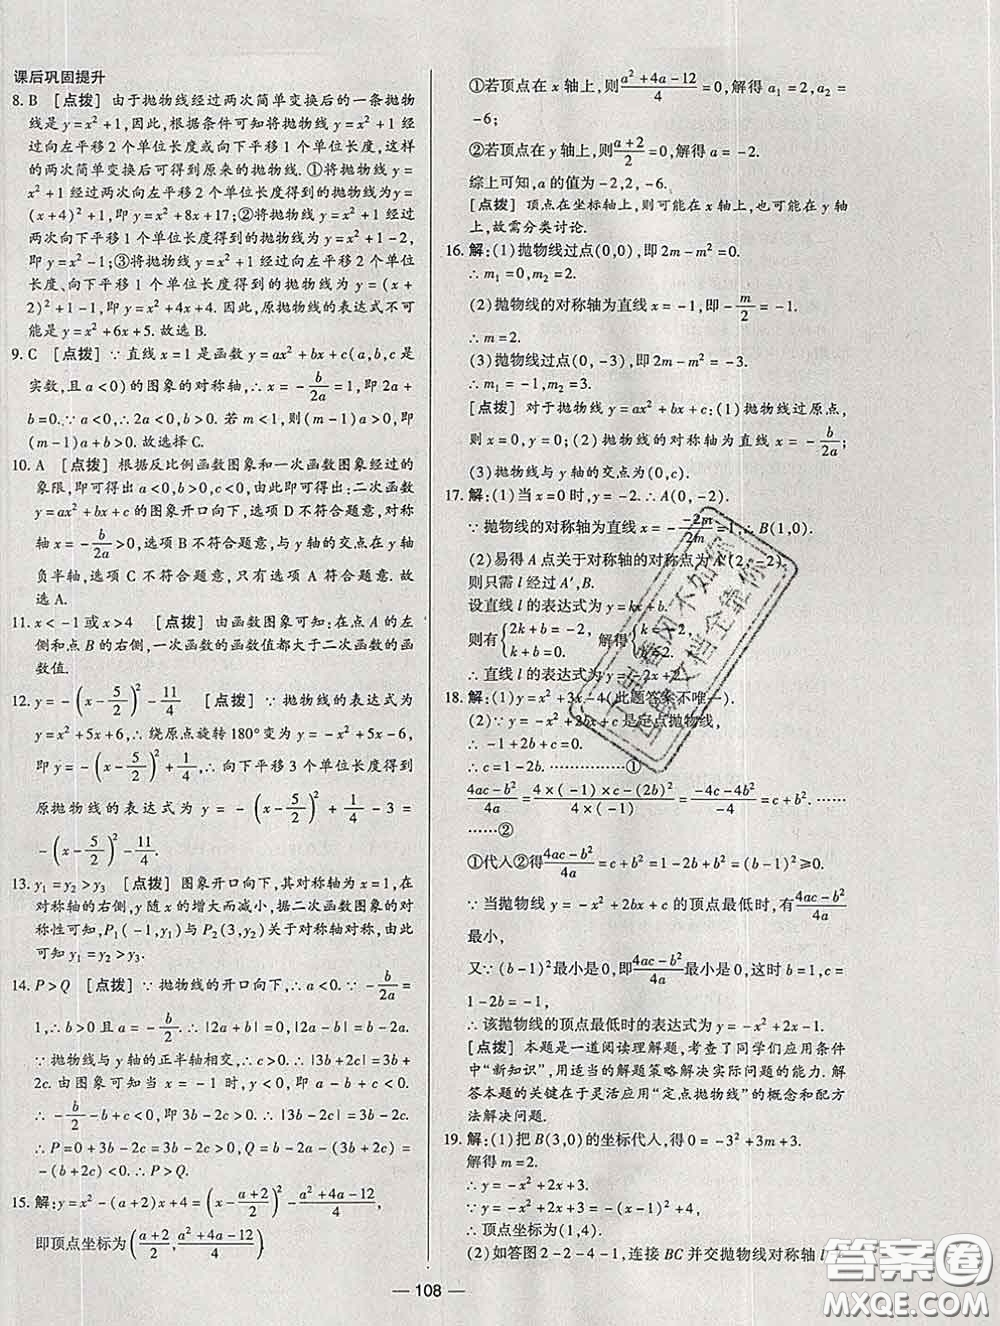 课后巩固提升
8. B [点拨] 由于抛物线经过两次简单变换后的一条抛物
线是y=x²+1,因此,根据条件可知将抛物线y=x²+1经
过向左平移2个单位长度或向下平移1个单位长度,这样
的两次简单变换可得到原来的抛物线.①将抛物线y=
x²+1经过两次向左平移2个单位长度得到的抛物线为y=
(x+4)²+1,即y=x²+8x+17;②将抛物线y=x²+1经过
两次向下平移1个单位长度得到的抛物线为y=x²+1-2,
即y=x²-1;③将抛物线y=x²+1经过向左平移2个单位
长度、向下平移1个单位长度得到的抛物线为y=(x+
2)²+1-1,即y=x²+4x+4.因此,原抛物线的表达式不可
能是y=x²+6x+5.故选B.
9. C [点拨] ∵直线x=1是函数y=ax²+bx+c(a,b,c是
实数,且a<0)的图象的对称轴,∴x=-b/2a=1,即2a+
b=0.∵a<0,∴2a<0,b>0.若m<1,则(m-1)a>0,即
(m-1)a+b>0.故选择C.
10. A [点拨] 根据反比例函数图象和一次函数图象经过的
象限,即可得出a<0,b>0,c<0,由此可得出:二次函数
y=ax²+bx+c的图象开口向下,选项D不符合题意,对称
轴x=-b/2a>0,选项B不符合题意,与y轴的交点在y轴
负半轴,选项C不符合题意,只有选项A符合题意.故
选A.
11. x<-1或x>4 [点拨] 由函数图象可知:在点A的左
侧和点B的右侧,一次函数的函数值都大于二次函数的函
数值.
12. y=-(x-5/2)²-11/4 [点拨] ∵抛物线的表达式为
y=x²+5x+6,∴绕原点旋转180°变为y=-x²+5x-6,
即y=-(x-5/2)²+1/4,∴向下平移3个单位长度得到
原抛物线的表达式为y=-(x-5/2)²+1/4-3=
-(x-5/2)²-11/4.
13. y₁=y₂>y₃ [点拨] 图象开口向下,其对称轴为x=1,在
对称轴的右侧,y随x的增大而减小,据二次函数图象的对
称性可知,P₁(-1,y₁)与P₂(3,y₂)关于对称轴对称,由此
可知y₁=y₂>y₃.
14. P>Q [点拨] ∵抛物线的开口向下,∴a<0.∵-b/2a=
1,∴b>0且a=-b/2.∴|2a+b|=0,|2a-b|=b-2a.
∵抛物线与y轴的正半轴相交,∴c>0.∴|3b+2c|=3b+
2c.由图象可知当x=-1时,y<0,即a-b+c<0.
∴-b/2-b+c<0,即3b-2c>0.∴|3b-2c|=3b-2c.
∴P=0+3b-2c=3b-2c>0,Q=b-2a-(3b+2c)=
-(b+2c)<0.∴P>Q.
15. 解:y=x²-(a+2)x+4=(x-(a+2)/2)²-(a²+4a-12)/4,
即顶点坐标为((a+2)/2,(a²+4a-12)/4)
①若顶点在x轴上,则(a²+4a-12)/4=0,解得a₁=2,a₂=
-6;
②若顶点在y轴上,则(a+2)/2=0,解得a=-2.
综上可知,a的值为-2,2,-6.
[点拨] 顶点在坐标轴上,则可能在x轴上,也可能在y轴
上,故需分类讨论.
16. 解:(1)抛物线过点(0,0),即2m-m²=0.
∴m₁=0,m₂=2.
(2)抛物线的对称轴为直线x=-1,即-m/2=-1.
∴m=2.
(3)抛物线过点(0,-3),即2m-m²=-3.
∴m₁=-1,m₂=3.
[点拨] 对于抛物线y=ax²+bx+c:(1)抛物线过原点,
则x=0,y=0;(2)抛物线的对称轴为直线x=-b/2a;
(3)抛物线与y轴的交点为(0,c).
17. 解:(1)当x=0时,y=-2.∴A(0,-2).
∵抛物线的对称轴为直线x=-(-2m)/2m=1,∴B(1,0).
(2)易得A点关于对称轴的对称点为A′(2,-2),
则只需l经过A′,B.
设直线l的表达式为y=kx+b.
则有{2k+b=-2, k+b=0. 解得{k=-2, b=2.
∴直线l的表达式为
18. 解:(1)y=x²+3x-4(此题答案不唯一).
(2)∵y=-x²+2bx+c是定点抛物线,
∴-1+2b+c=0.
∴c=1-2b.………………①
(4ac-b²)/4a=(4×(-1)×c-(2b)²)/(4×(-1))=(-4c-4b²)/-4=c+b².……
……②
①代人②得(4ac-b²)/4a=c+b²=1-2b+b²=(b-1)²≥0.
∵当抛物线y=-x²+2bx+c的顶点最低时,有(4ac-b²)/4a
最小,
又∵(b-1)²最小是0,即(4ac-b²)/4a最小是0,这时b=1,c=
1-2b=-1,
∴该抛物线的顶点最低时的表达式为y=-x²+2x-1.
[点拨] 本题是一道阅读理解题,考查了同学们应用条件
中“新知识”,用适当的解题策略解决实际问题的能力.解
答本题的关键在于灵活应用“定点抛物线”的概念和配方
法解决问题.
19. 解:(1)把B(3,0)的坐标代人,得0=-3²+3m+3.
解得m=2.
∴y=-x²+2x+3.
∵y=-x²+2x+3=-(x-1)²+4,
∴顶点坐标为(1,4).
(2)如答图2-2-4-1,连接BC并交抛物线对称轴l
— 108 —
答案圈
MXQE.COM